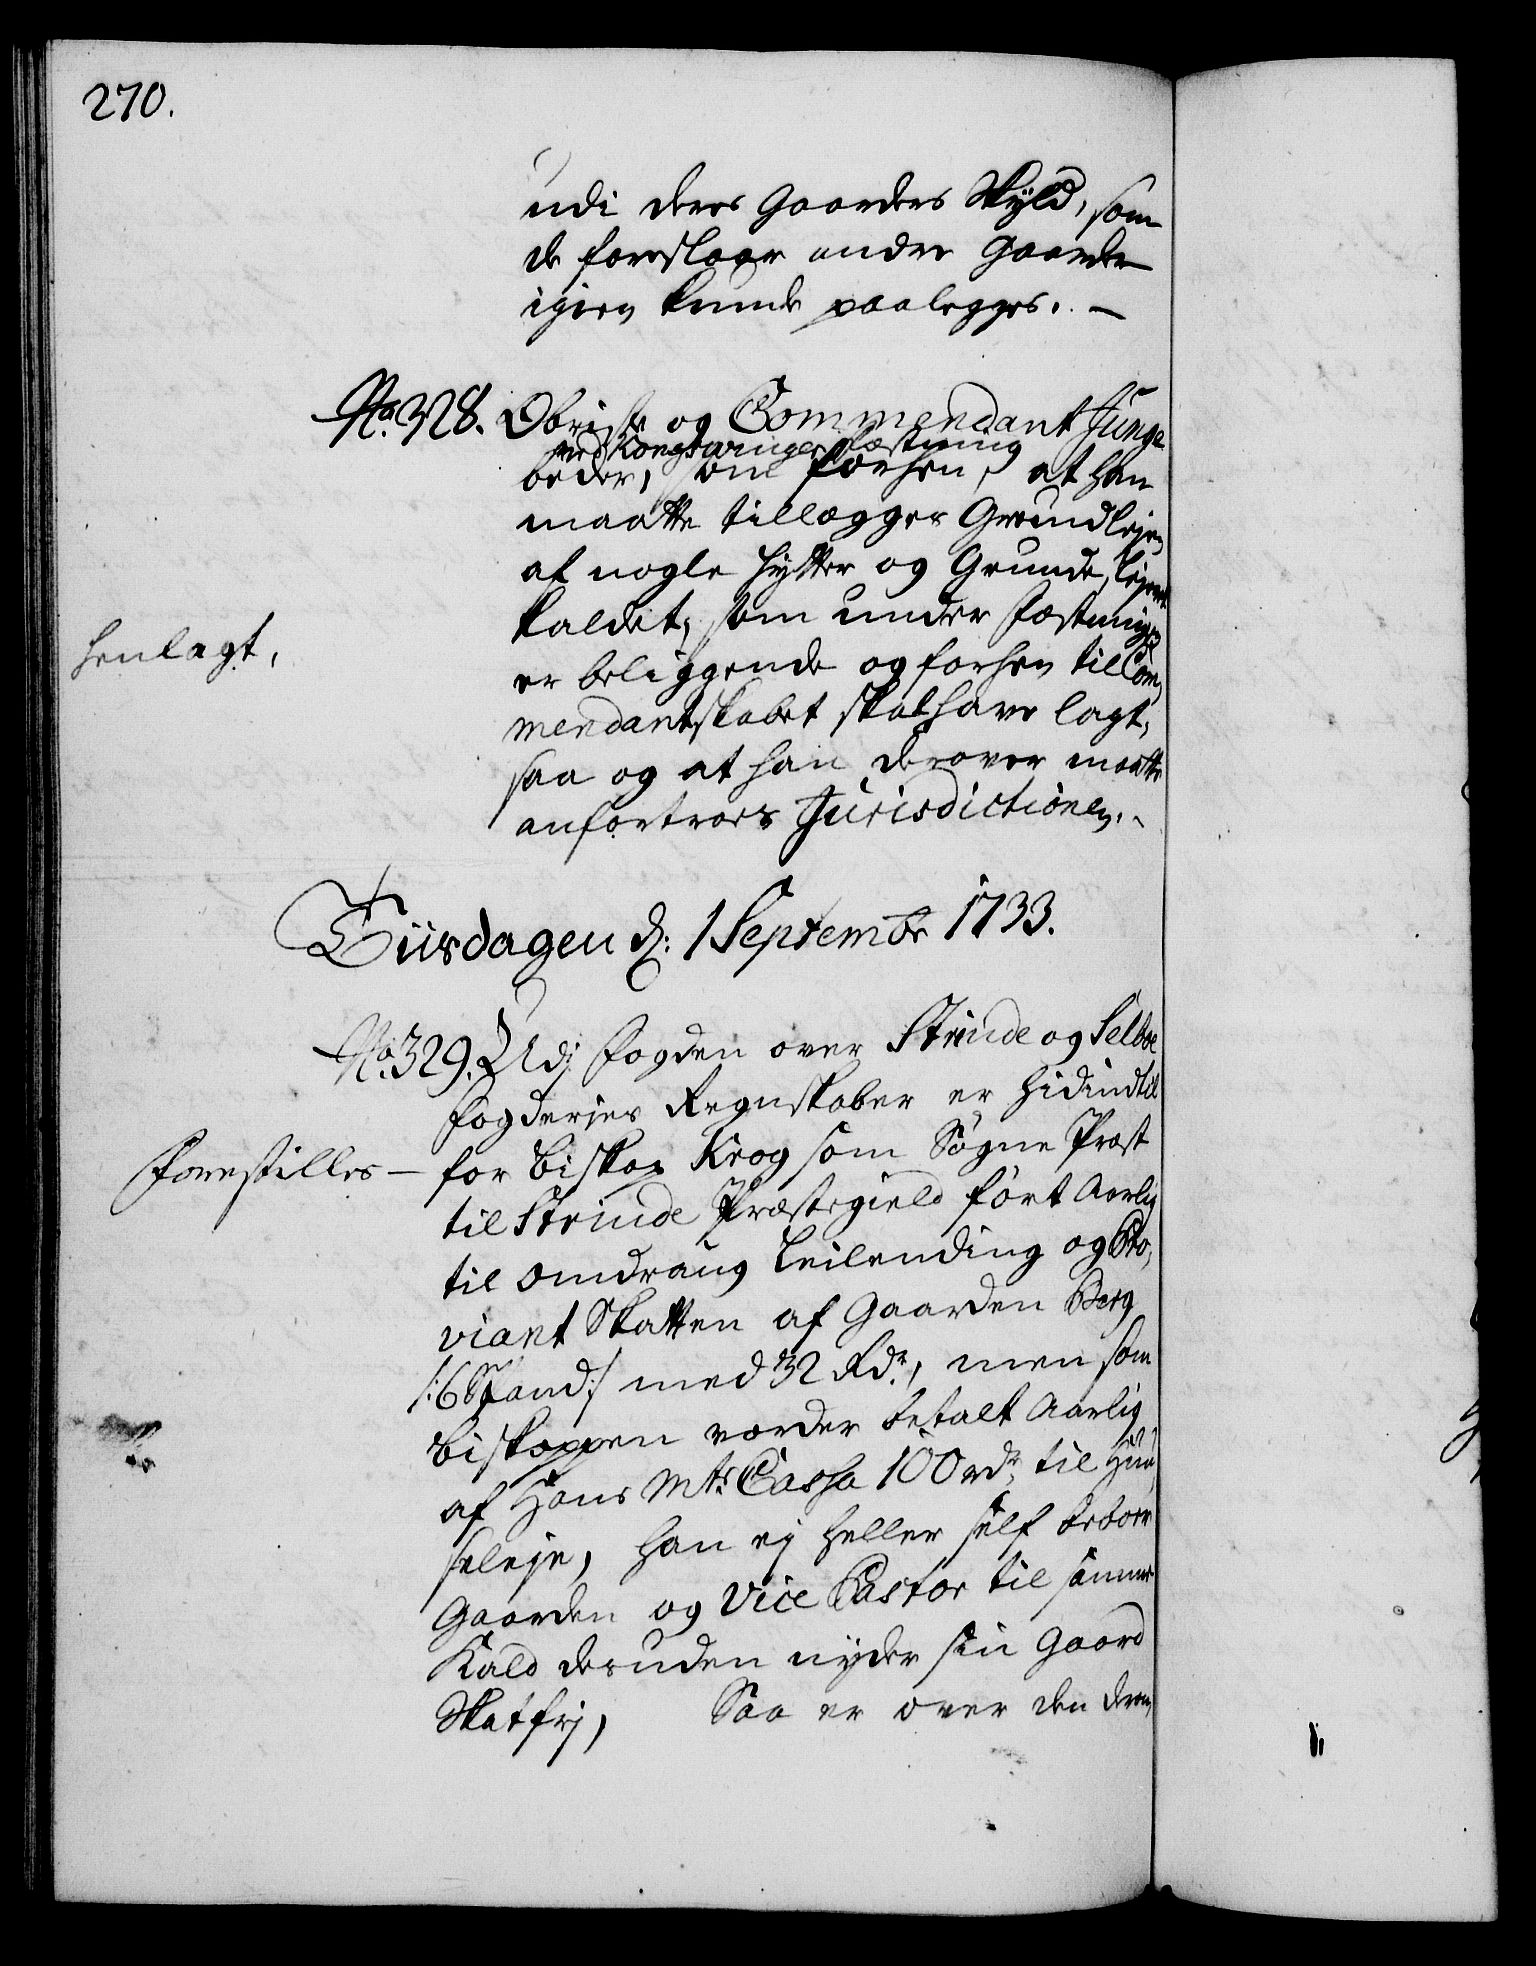 270.
udi deres Gaarders Skyld, som
de foreslaar andre Gaarder
igien kunde paalegges. -
No. 328. Obrist og Commendant Junge
ved Kongswinger Fæstning
beder, som forhen, at han
maatte tillægges Grundlejen
af nogle Hytter og Grunde, Lejeret
kaldet, som under Fæstningen
er beliggende og forhen til Com,
henlagt,
mendantskabet skal have lagt,
saa og at han derover maatte
anfortroes Jurisdictionen. -
Tiisdagen d: 1 Septembr 1733.
No. 329. Udj Fogden over Strinde og Selboe
Fogderies Regnskaber er hidindtil
Forestilles - for Biskop Krog som Sogne Præst
til Strinde Præstegield ført Aarlig
til Omdrang Leilending og Pro,
viant Skatten af Gaarden Berg
/:6 Spand:/ med 32 Rdr., men som
Biskoppen vorder betalt Aarlig
af Hans Mts. Cassa 100 rdr. til Huu,
seleje, han ej heller self beboer
Gaarden og Vice Pastor til samme
Kald desuden nyder sin Gaard
Skatfrj, Saa er over den Derom,